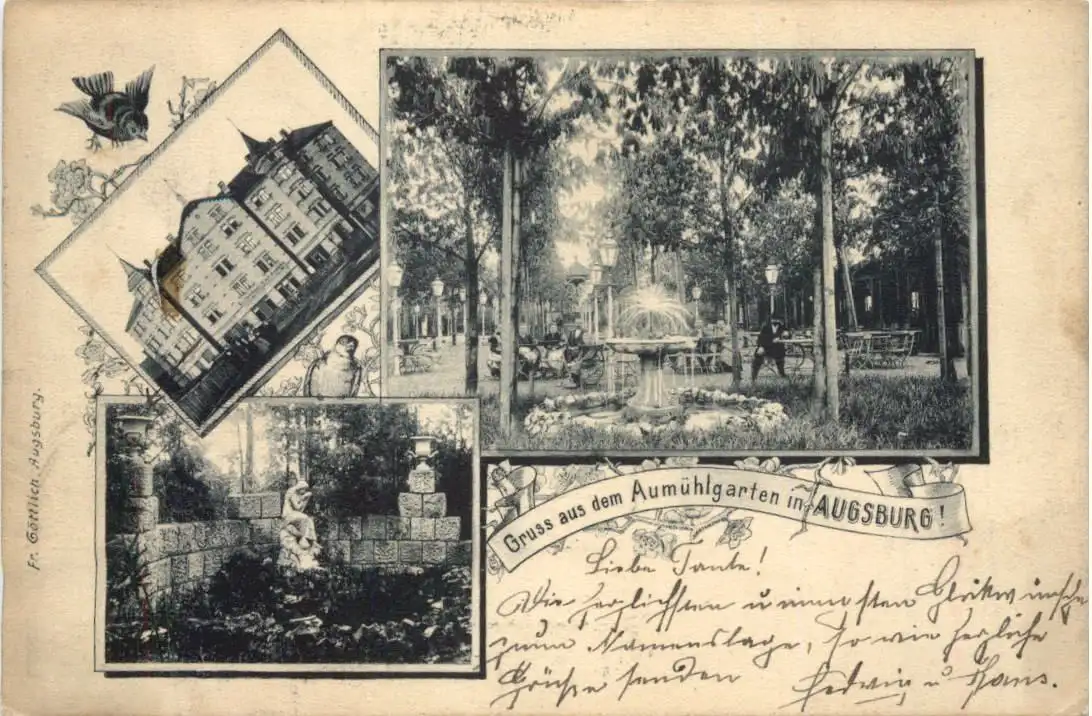 Fr. Göttlich Augsburg.
Gruss aus dem Aumühlgarten in AUGSBURG!
Liebe Tante!
Die herzlichsten u innigsten Glückwünsche
zum Namenstage, so wie herzliche
Grüsse senden Hedwig u Hans.